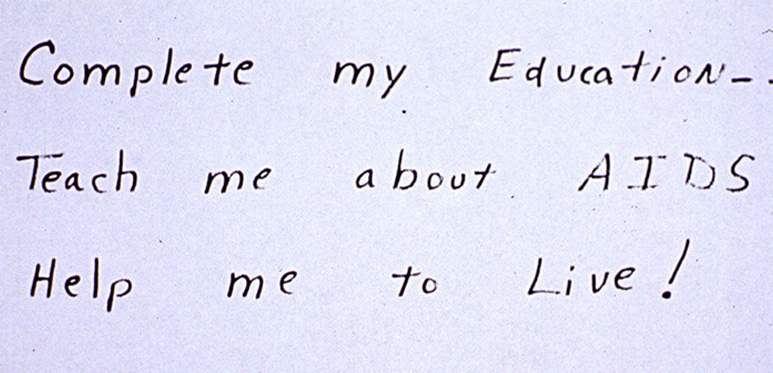 Complete my Education--
Teach me about AIDS
Help me to Live!